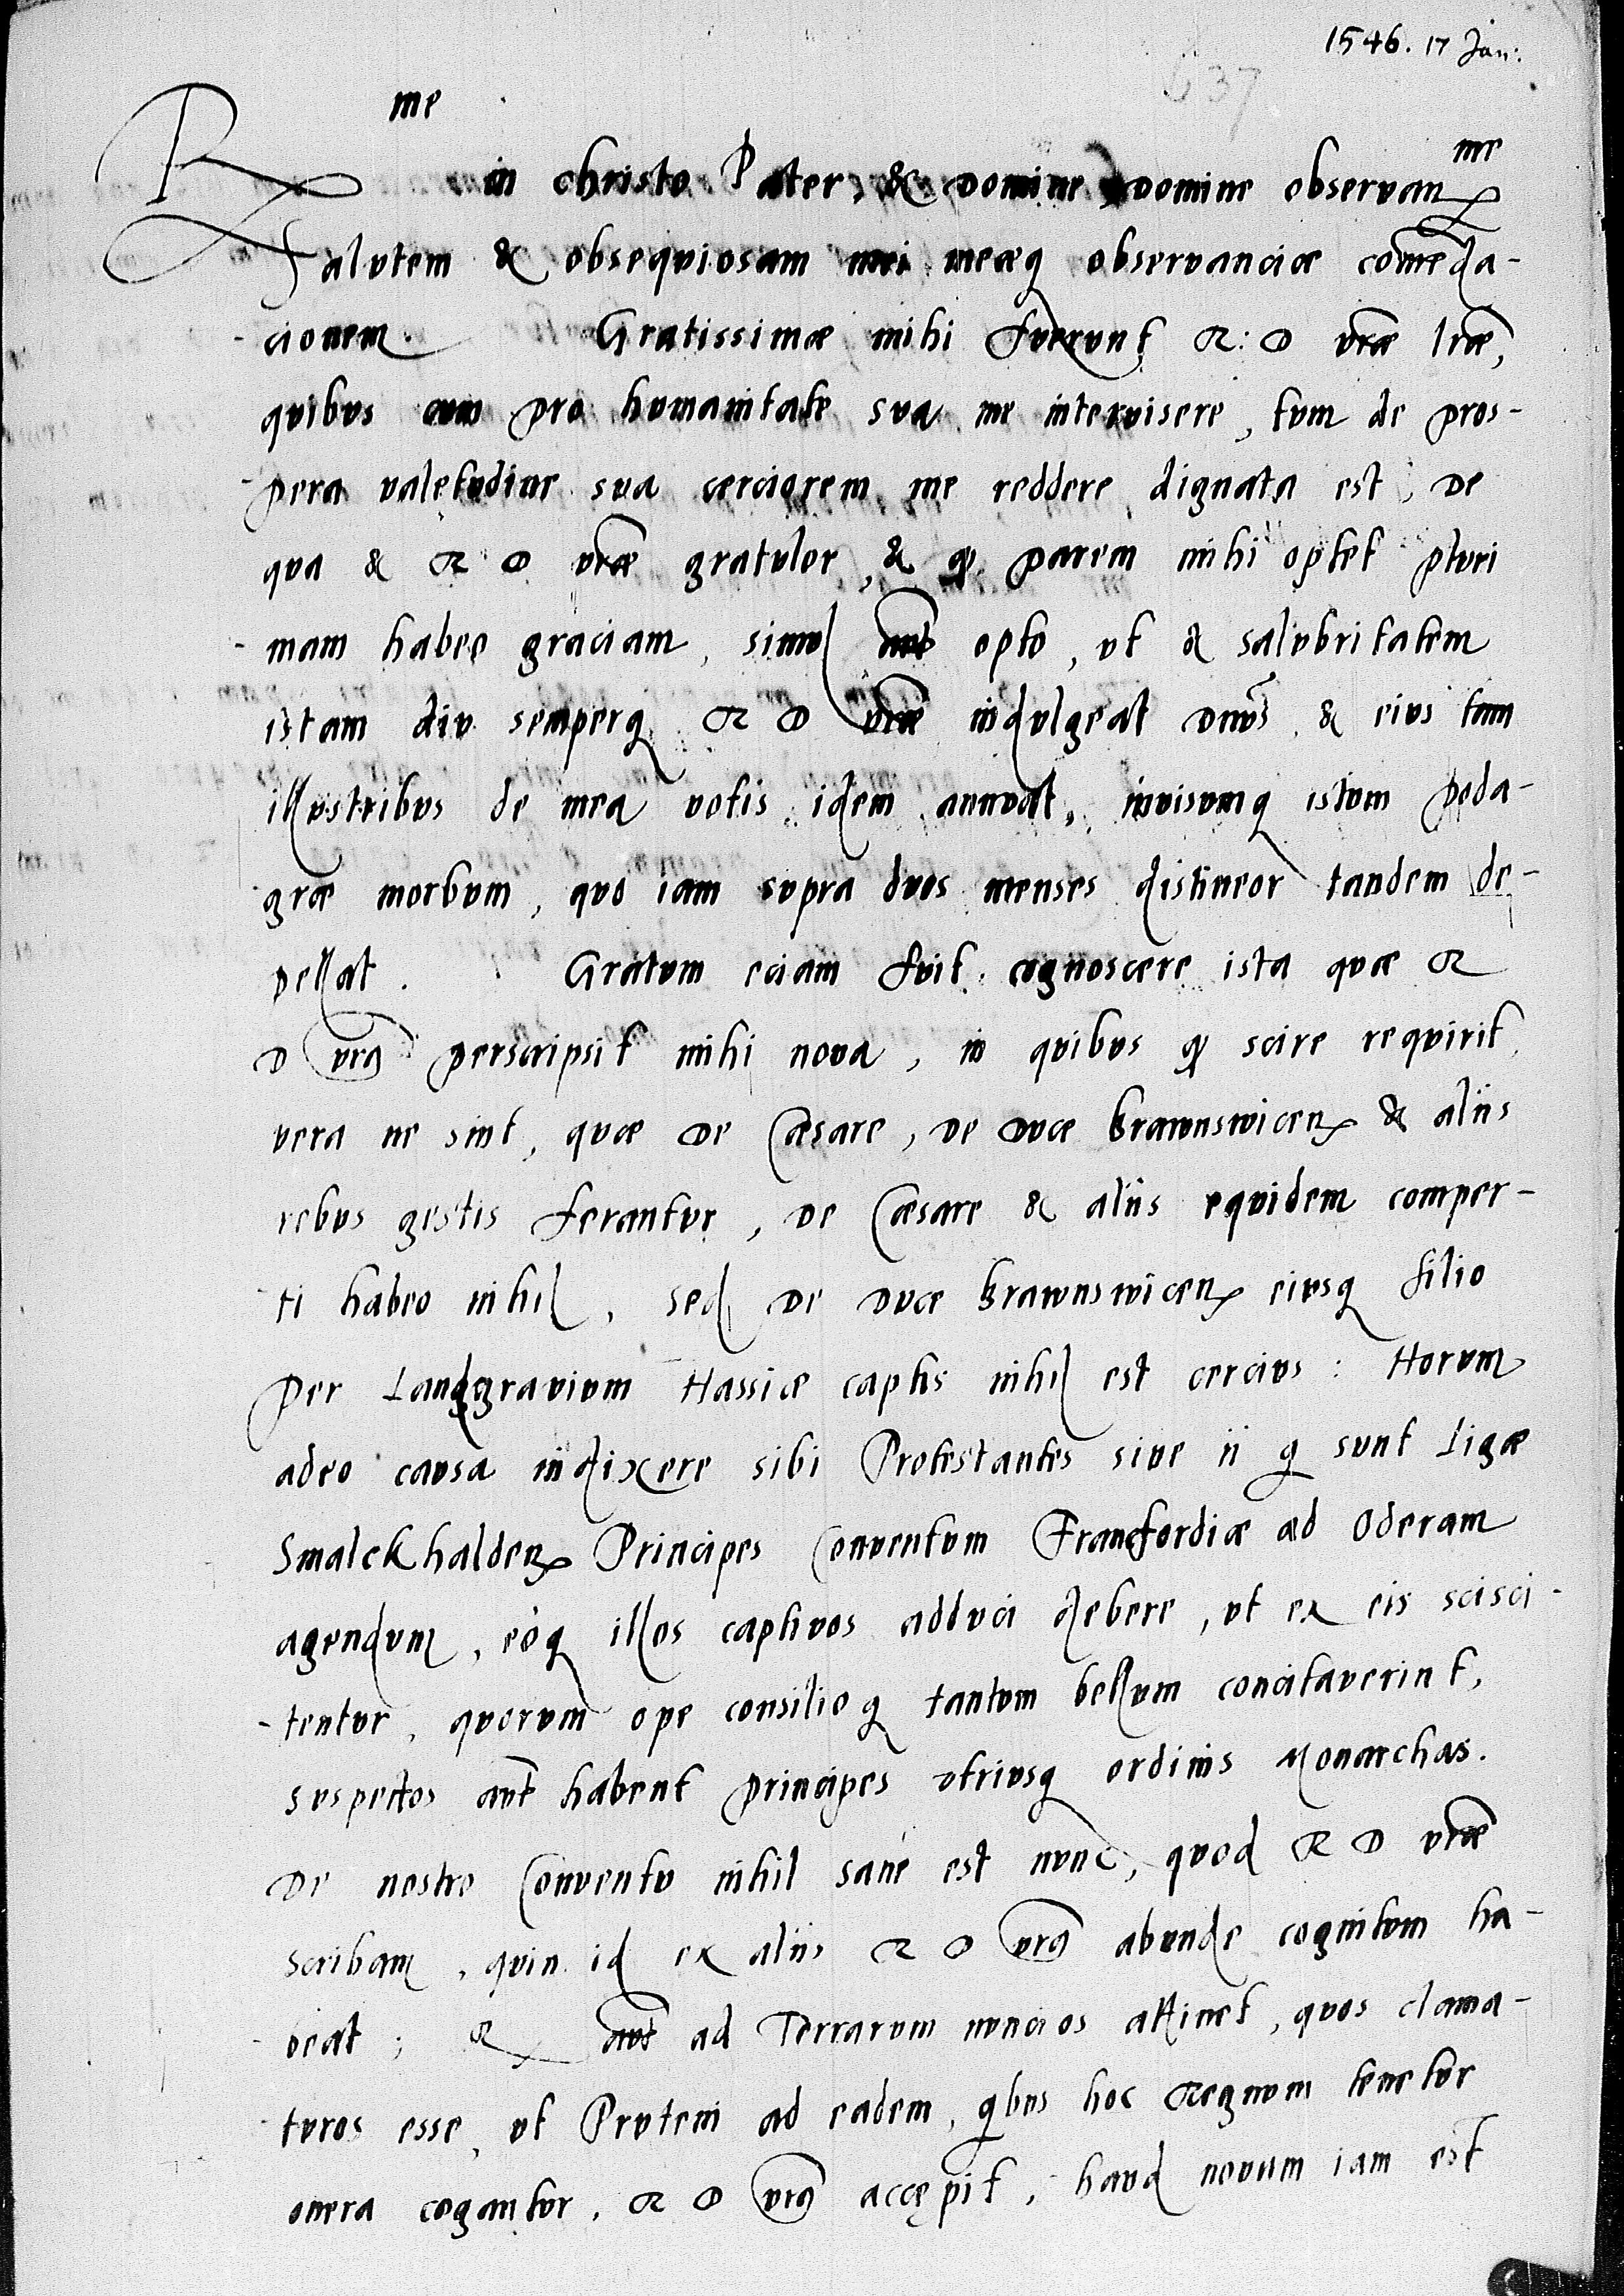 1546. 17 Jan:
637
R me in christo Pater, & domine domine observan me
Salutem & obsequiosam mei meæq observanciæ comēda-
cionem. Gratissimæ mihi fuerunt R: D vræ lræ,
quibus cum pro humanitate sua me intervisere, tum de pros-
pera valetudine sua cerciorem me reddere dignata est, De
qua & R D vræ gratulor, & q parem mihi optet pluri
mam habeo graciam, simul aut opto, ut & salubritatem
istam diu semperq R D vræ indulgeat Dnūs & eius tam
illustribus de mea votis idem annuat, invisumq istum poda-
græ morbum, quo iam supra duos menses distineor tandem de-
pellat. Gratum eciam fuit cognoscere ista quæ R
D vra perscripsit mihi nova, in quibus q scire requirit,
vera ne sint, quæ de Cæsare, de duce Brawnswicen & aliis
rebus gestis ferantur, de Cæsare & aliis equidem comper-
ti habeo nihil, sed de duce Brawnswicen eiusq filio
per Landgravium Hassiæ captis nihil est cercius: Horum
adeo causa indixere sibi Protestantes sive ii q sunt Ligæ
Smalckhalden Principes Conventum Francfordiæ ad Oderam
agendum, eoq illos captivos adduci debere, ut ex eis scisci-
tentur, quorum ope consilioq tantum bellum concitaverint,
suspectos aut habent principes utriusq ordinis Monarchas.
De nostro Conventu nihil sane est nunc, quod R D vræ
scribam, quin id ex aliis R D vra abunde cognitum ha-
beat; & aut ad Terrarum nuncios attinet, quos clama-
turos esse, ut Pruteni ad eadem, qbus hoc Regnum tenetur
onera cogantur, R D vra accepit, haud novum iam est